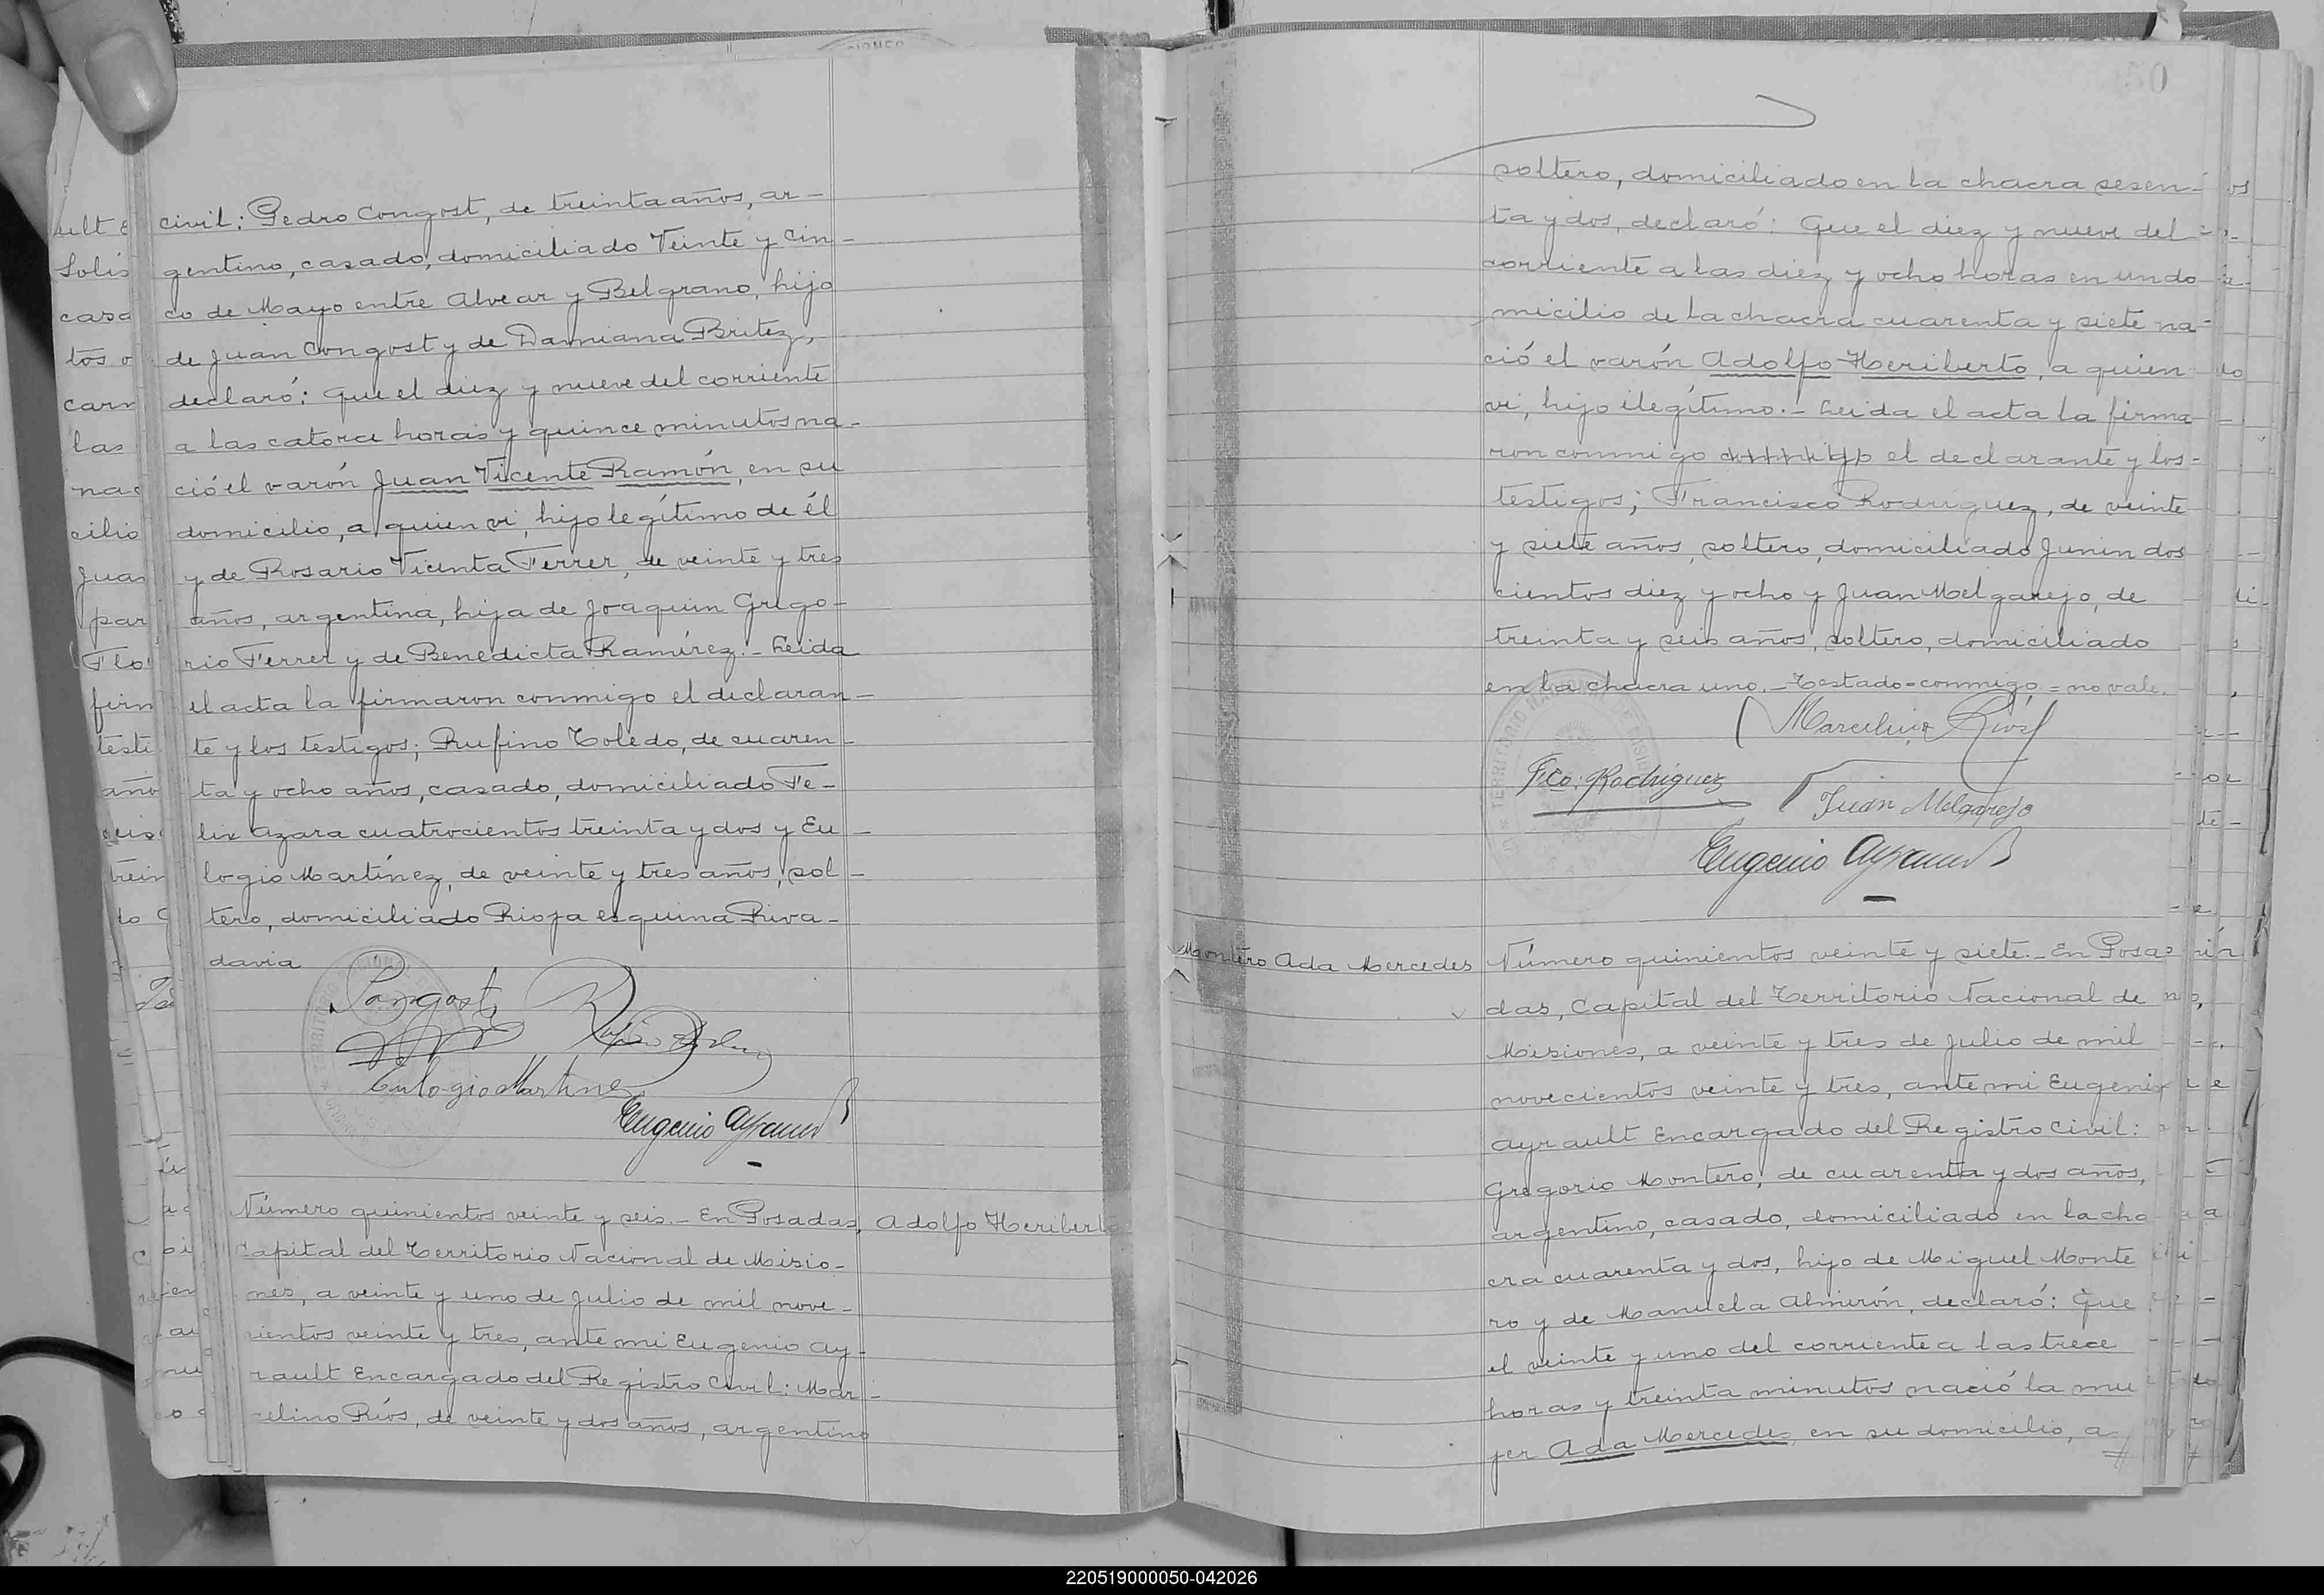 civil: Pedro Congost, de treinta años, ar-
gentino, casado, domiciliado Veinte y cin-
co de Mayo entre Alvear y Belgrano, hijo
de Juan Congost y de Damiana Britez,
declaró: Que el diez y nueve del corriente
a las catorce horas y quince minutos na-
ció el varón Juan Vicente Ramón, en su
domicilio, a quien vi, hijo legítimo de él
y de Rosario Vicenta Ferrer, de veinte y tres
años, argentina, hija de Joaquin Grego-
rio Ferrer y de Benedicta Ramírez.- Leida
el acta la firmaron conmigo el declaran-
te y los testigos; Rufino Toledo, de cuaren-
ta y ocho años, casado, domiciliado Fe-
lix Azara cuatrocientos treinta y dos y Eu-
logio Martínez, de veinte y tres años, sol-
tero, domiciliado Rioja esquina Riva-
davia
Congost
Eulogio Martinez
Eugenio Ayrault
Número quinientos veinte y seis.- En Posadas, Adolfo Heriberto
Capital del Territorio Nacional de Misio-
nes, a veinte y uno de Julio de mil nove-
cientos veinte y tres, ante mi Eugenio Ay-
rault Encargado del Registro Civil: Mar-
celino Ríos, de veinte y dos años, argentino
50
soltero, domiciliado en la chacra sesen-
ta y dos, declaró: Que el diez y nueve del
corriente a las diez y ocho horas en un do-
micilio de la chacra cuarenta y siete na-
ció el varón Adolfo Heriberto, a quien
vi, hijo ilegítimo.- Leida el acta la firma
ron conmigo conmigo el declarante y los
testigos; Francisco Rodriguez, de veinte
y siete años, soltero, domiciliado Junin dos
cientos diez y ocho y Juan Melgarejo, de
treinta y seis años, soltero, domiciliado
en la chacra uno.- Testado=conmigo=no vale.
Marcelino Rios
Fco. Rodriguez
Juan Melgarejo
Eugenio Ayrault
Montero Ada Mercedes
Número quinientos veinte y siete.- En Posa-
das, Capital del Territorio Nacional de
Misiones, a veinte y tres de Julio de mil
novecientos veinte y tres, ante mi Eugenio
Ayrault Encargado del Registro Civil:
Gregorio Montero, de cuarenta y dos años,
argentino, casado, domiciliado en la cha
cra cuarenta y dos, hijo de Miguel Monte
ro y de Manuela Almirón, declaró: Que
el veinte y uno del corriente a las trece
horas y treinta minutos nació la mu
jer Ada Mercedes, en su domicilio, a
220519000050-042026